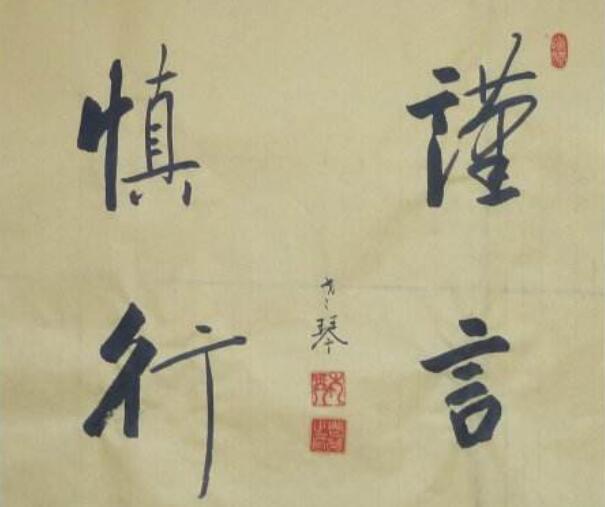 謹言
慎行
琴